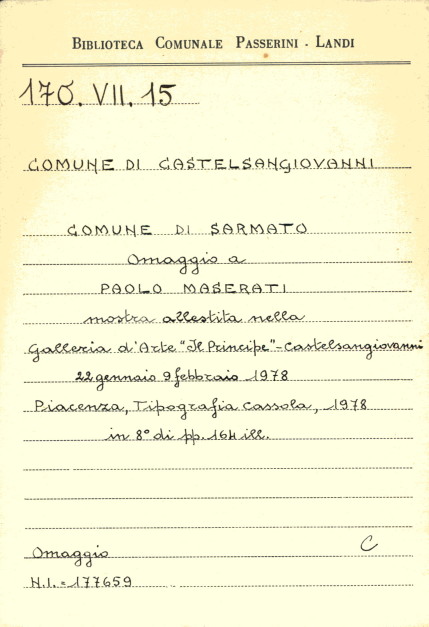 BIBLIOTECA COMUNALE PASSERINI - LANDI
170. VII. 15
COMUNE DI CASTELSANGIOVANNI
COMUNE DI SARMATO
Omaggio a
PAOLO MASERATI
mostra allestita nella
Galleria d'Arte "Il Principe" - Castelsangiovanni
22 gennaio 9 febbraio 1978
Piacenza, Tipografia Cassola, 1978
in 8° di pp. 164 ill.
Omaggio C
N.I. = 177659